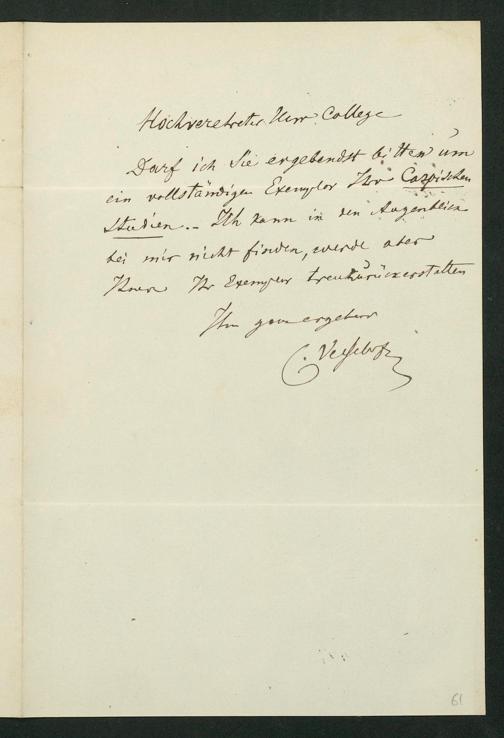 Hochverehrter Herr College
Darf ich Sie ergebendst bitten um
ein vollständigen Exemplar Ihr
Studien. - Ich kann in den Augenblick
bei mir nicht finden, werde aber
Ihnen Ihr Exemplar treu zurückerstatten
Ihr ganz ergebener
C.
61